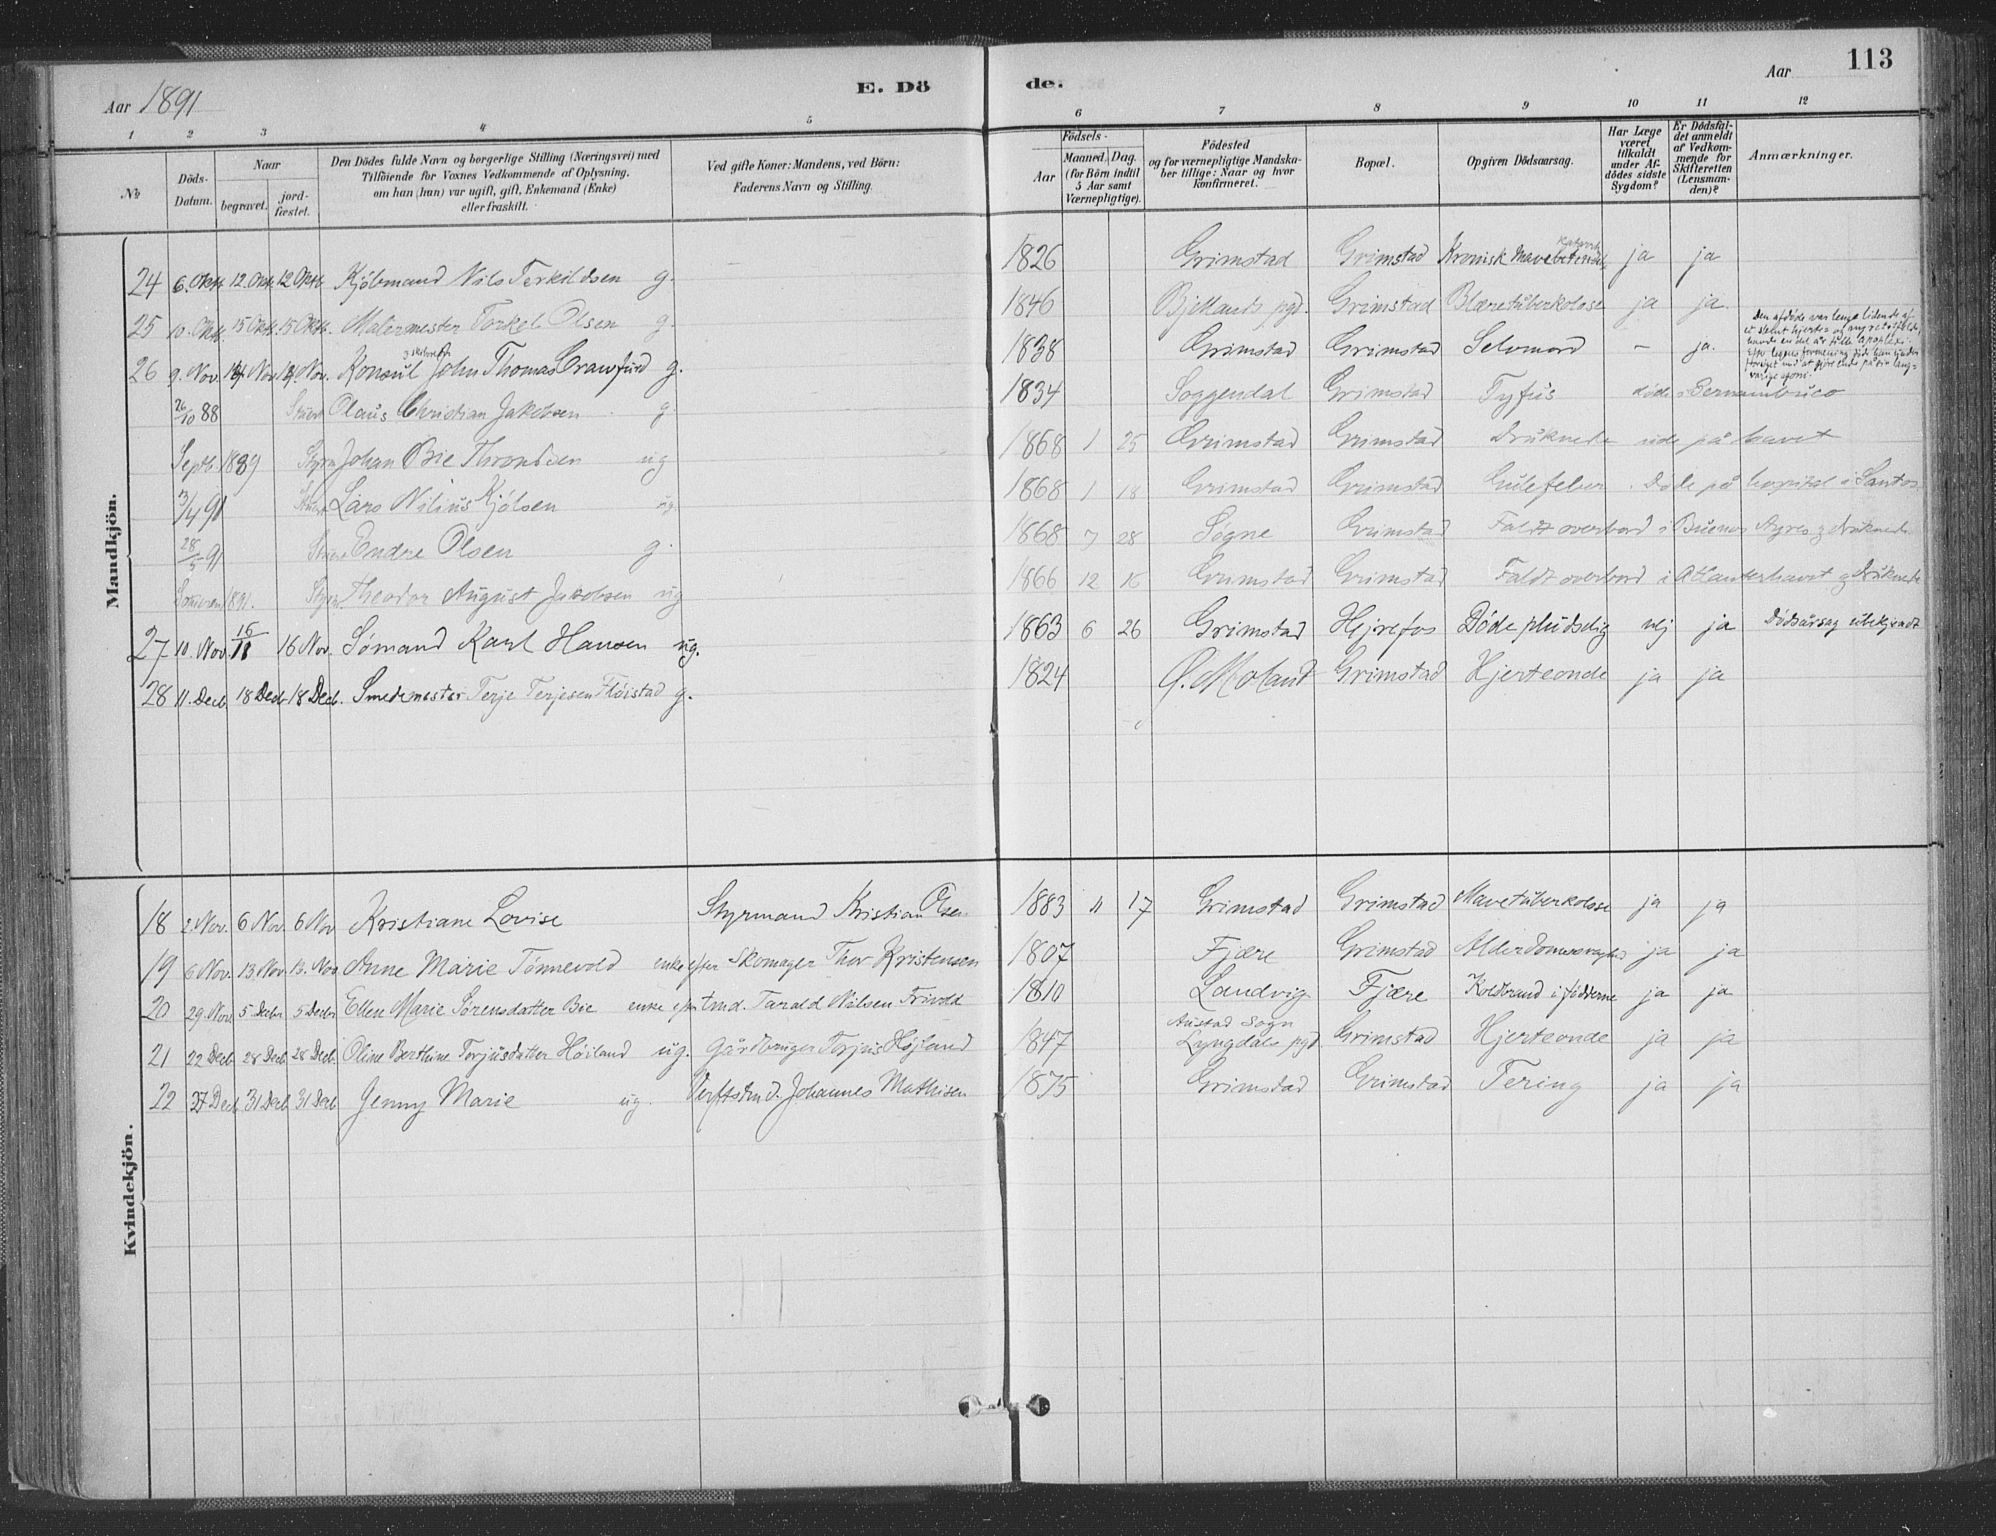 Aar 1891
E. Dö
de.
Aar
113
1 2 3 4 5 6 7 8 9 10 11 12
No
Döds-Datum.
Naar
begravet.
jord-fæstet.
Den Dödes fulde Navn og borgerlige Stilling (Næringsvei) med
Tilföiende for Voxnes Vedkommende af Oplysning,
om han (hun) var ugift, gift, Enkemand (Enke)
eller fraskilt.
Ved gifte Koner: Mandens, ved Börn:
Faderens Navn og Stilling.
Födsels-
Aar
Maaned. Dag.
(for Börn indtil
5 Aar samt
Værnepligtige).
Födested
og for værnepligtige Mandska-
ber tillige: Naar og hvor
konfirmeret.
Bopæl.
Opgiven Dödsaarsag.
Har Læge
været
tilkaldt
under Af-
dödes sidste
Sygdom?
Er Dödsfal-
det anmeldt
af Vedkom-
mende for
Skifteretten
(Lensman-
den)?
Anmærkninger.
Mandkjön.
24 6. Oktb. 12. Oktb. 12 Oktb. Kjöbmand Nils Terkildsen g. 1826 Grimstad Grimstad Kronisk ja ja
25 10. Oktb. 15 Oktb. 15 Oktb. Malermester Torkel Olsen g. 1846 Bjellands pgd. Grimstad Blæretüberkolose ja ja
26 9. Nov. 14 Nov. 14. Nov. Konsul John Thomas Crawfurd g. 1838 Grimstad Grimstad Selvmord – ja. Den afdøde var længe lidende af
26/10 88 Olaus Christian Jakobsen g. 1834 Soggendal Grimstad Tyfus døde i Pernambuco
Septb. 1889 Styrm Johan Bie Throndsen ug 1868 1 25 Grimstad Grimstad Druknede ude på havet
13/4 91 Lars Nilius Kjølsen ug. 1868 1 18 Grimstad Grimstad Gulefeber. Døde på hospital i Santos
28/5 91 Endre Olsen g. 1868 7 28 Søgne Grimstad Faldt overbord i Buenos Ayres & druknede
Sommeren 1891. Styrm Theodor August Jakobsen ug 1866 12 16 Grimstad Grimstad Faldt overbord i Atlanterhavet og druknede
27 10. Nov. 16/11 16 Nov. Sømand Karl Hansen ug. 1863 6 26 Grimstad Hejrefos Døde pludselig nej ja Dødsårsag übekjendt
28 11. Decb. 18 Decb. 18 Decb. Smedemester Terje Terjesen Fløistad g. 1824 Ø. Moland Grimstad Hjerteonde ja ja
Kvindekjön.
18 2. Nov. 6 Nov. 6 Nov Kristiane Lovise Styrmand Kristian Olsen 1883 11 17 Grimstad Grimstad Mavetüberkolose ja ja
19 6 Nov. 13 Nov. 13. Nov Anne Marie Tønnevold enke efter Skomager Thor Kristensen 1807 Fjære Grimstad Alderdomssvaghed ja ja
20 29. Nov. 5 Decbr 5 Decbr Ellen Marie Sørensdatter Bie enke efter tmd. Tarald Nilsen Frivold 1810 Landvig Fjære Koldbrand i fødderne ja ja
21 22 Decb 28 Decb 28 Decb. Oline Berthine Torjusdatter Høiland ug. Gårdbruger Torjus Højland 1847 Austad Sogn Lyngdals pgd Grimstad Hjerteonde ja ja
22 27 Decb 31 Decb 31 Decb Jenny Marie ug. Verftstmd. Johannes Mathisen 1875 Grimstad Grimstad Tering ja ja